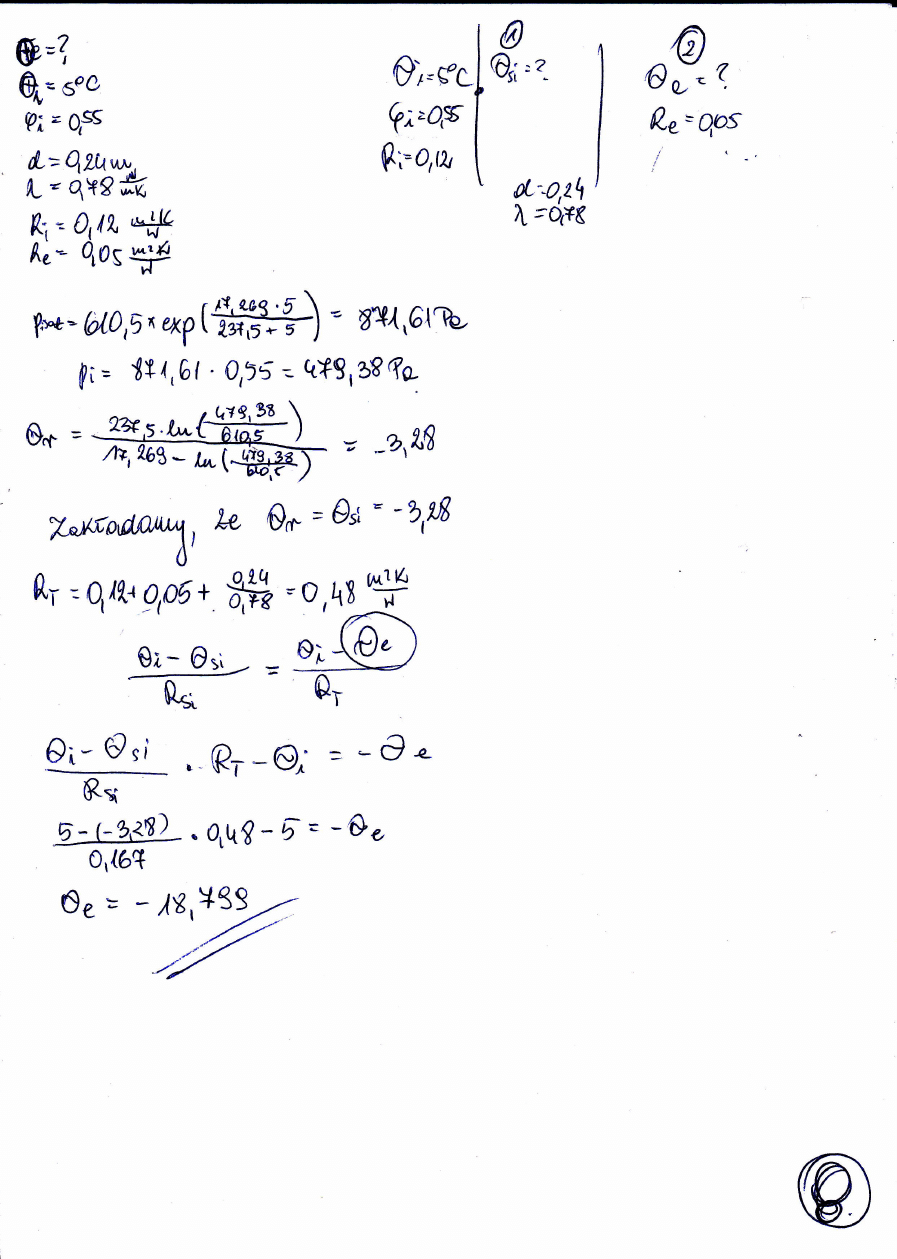 θe = ?
θi = 5°C
φi = 0,55
d = 0,24 m
λ = 0,78 W/mK
Ri = 0,12 m²K/W
Re = 0,05 m²K/W
θi = 5°C
φi = 0,55
Ri = 0,12
①
θsi = ?
d = 0,24
λ = 0,78
②
θe = ?
Re = 0,05
pisat = 610,5 * exp(17,269 · 5 / 237,5 + 5) = 871,61 Pa
pi = 871,61 · 0,55 = 479,38 Pa
θr = 237,5 · ln(479,38 / 610,5) / 17,269 - ln(479,38 / 610,5) = -3,28
Zakładamy, że θr = θsi = -3,28
RT = 0,12 + 0,05 + 0,24 / 0,78 = 0,48 m²K/W
θi - θsi / Rsi = θi - θe / RT
θi - θsi / Rsi · RT - θi = -θe
5 - (-3,28) / 0,167 · 0,48 - 5 = -θe
θe = -18,799